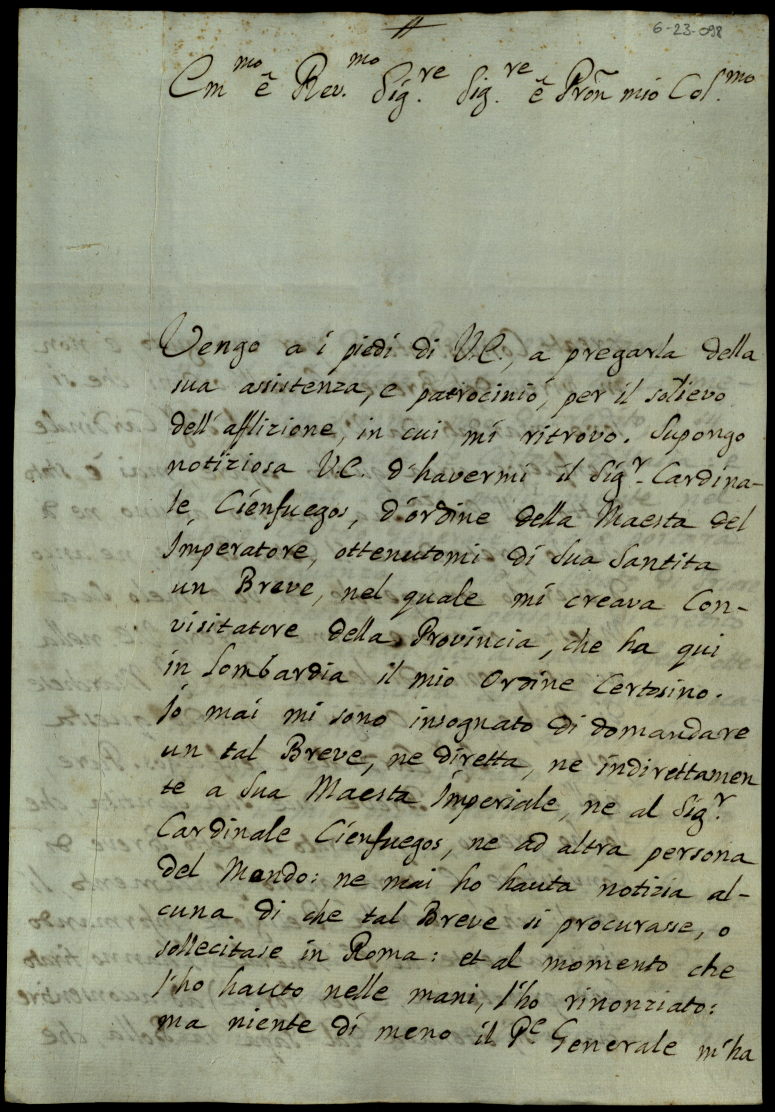 6-23-098
Em.mo ē Rev.mo Sig.re Sig.re ē Pron̄ mio Col.mo
Vengo a i piedi di V.E., a pregarla della
sua assistenza, e patrocinio, per il solievo
dell'aflizione, in cui mi ritrovo. Supongo
notiziosa V.E. d'havermi il Sig.r Cardina-
le Cienfuegos, d'ordine della Maesta del
Imperatore, ottenutomi di Sua Santita
un Breve, nel quale mi creava Con-
visitatore della Provincia, che ha qui
in Lombardia il mio Ordine Certosino.
Jo mai mi sono insognato di domandare
un tal Breve, ne diretta, ne indirettamen
te a Sua Maesta Imperiale, ne al Sig.r
Cardinale Cienfuegos, ne ad altra persona
del Mondo: ne mai ho hauta notizia al-
cuna di che tal Breve si procurasse, o
sollecitase in Roma: et al momento che
l'ho hauto nelle mani, l'ho rinonziato:
ma niente di meno il P.e Generale m'ha